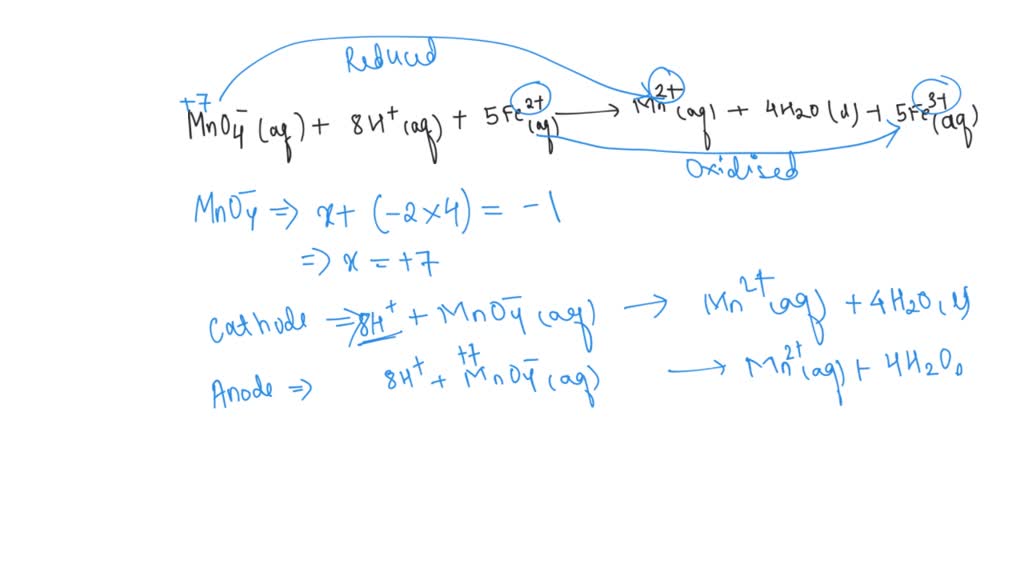 Reduced
+7
MnO4⁻ (aq) + 8H⁺ (aq) + 5Fe²⁺ (aq) → Mn²⁺ (aq) + 4H2O (l) + 5Fe³⁺ (aq)
Oxidised
MnO4⁻ ⇒ x + (-2×4) = -1
⇒ x = +7
Cathode ⇒ 8H⁺ + MnO4⁻ (aq) → Mn²⁺ (aq) + 4H2O (l)
+7
Anode ⇒ 8H⁺ + MnO4⁻ (aq) → Mn²⁺ (aq) + 4H2O